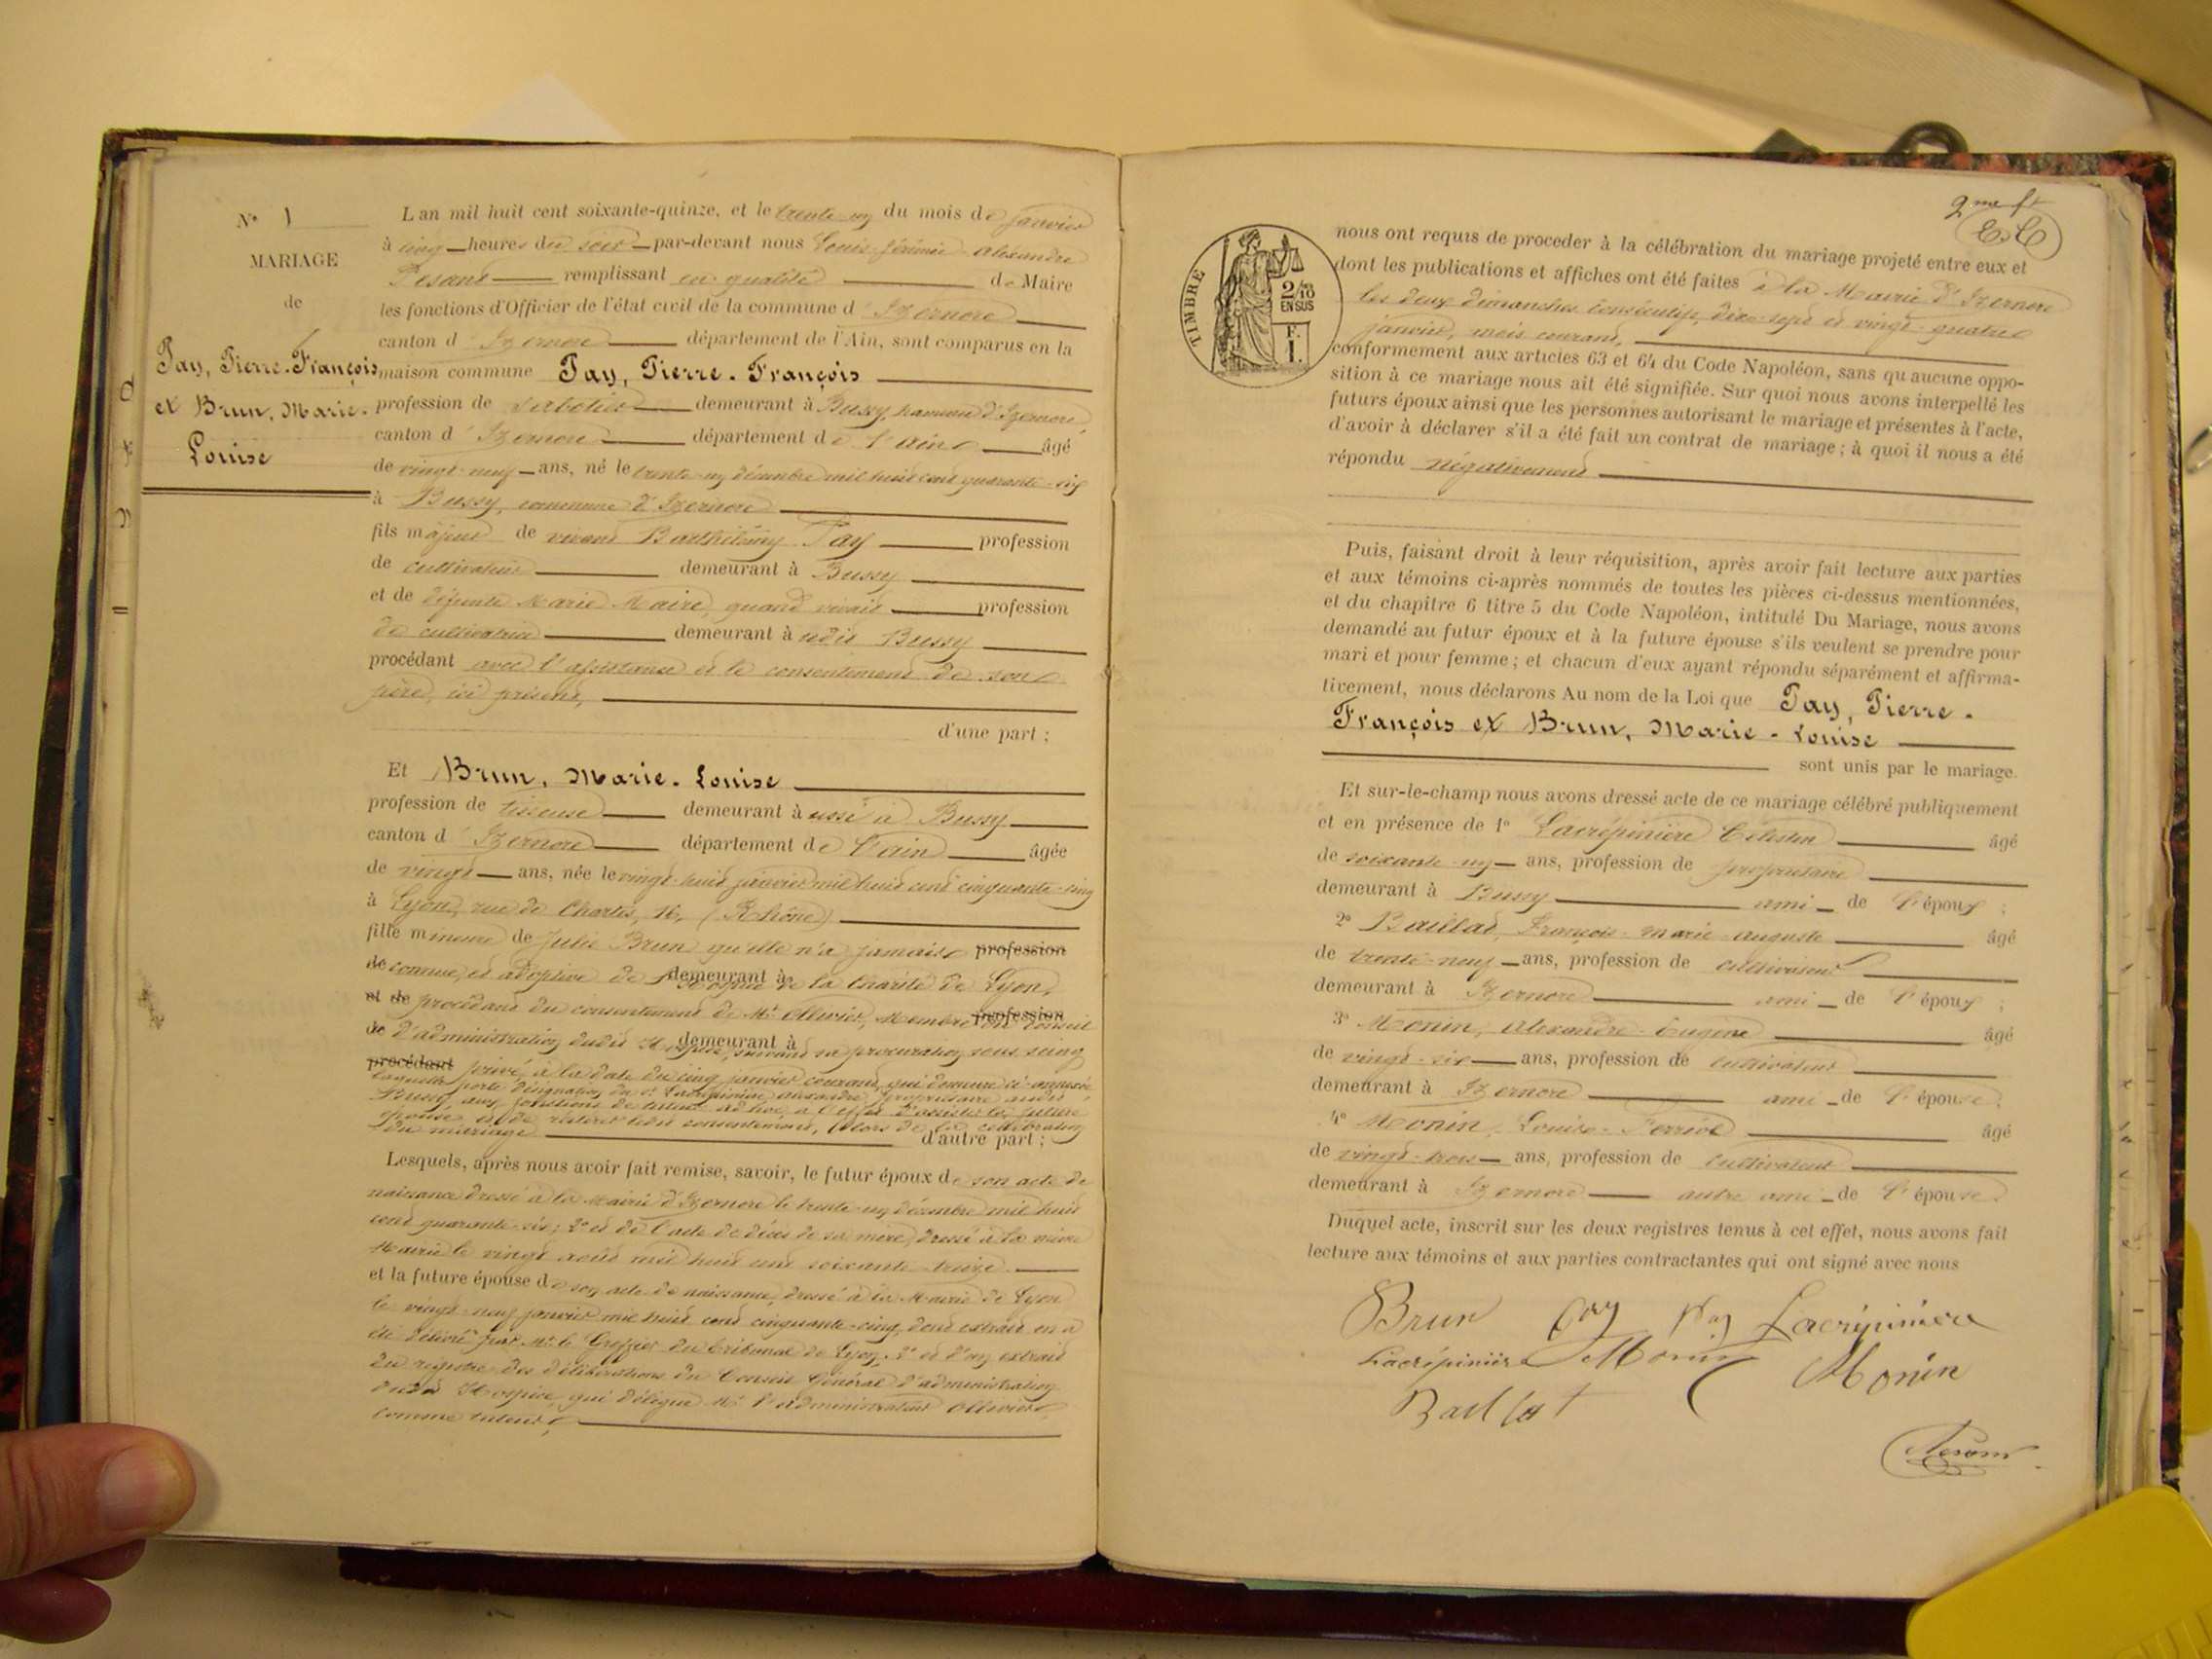 N° 1
MARIAGE
de
Pay, Pierre-François
et Brun, Marie-
Louise
L'an mil huit cent soixante-quinze, et le trente-un du mois de janvier
à cinq heures du soir par-devant nous Louis Jérémie Alexandre
remplissant en qualité de Maire
les fonctions d'Officier de l'état civil de la commune d'Izernore
canton d'Izernore département de l'Ain, sont comparus en la
maison commune Pay, Pierre-François
profession de sabotier demeurant à Bussy, hameau d'Izernore,
canton d'Izernore département de l'ain âgé
de vingt-neuf ans, né le trente-un décembre mil huit cent quarante-six
à Bussy, commune d'Izernore
fils majeur de vivant Barthélemy Pay profession
de cultivateur demeurant à Bussy
et de défunte Marie Maire, quand vivait profession
de cultivatrice demeurant à udit Bussy
procédant avec l'assistance et le consentement de son
père, ici présent,
d'une part ;
Et Brun, Marie-Louise
profession de tisseuse demeurant à ussi à Bussy
canton d'Izernore département de l'ain âgée
de vingt ans, née le vingt-huit janvier mil huit cent cinquante-cinq
à Lyon, rue de Chartres, 16, (Rhône)
fille mineure de Julie Brun qu'elle n'a jamais profession
de connue, et adoptive de l'hospice demeurant à de la Charité de Lyon,
et de procédant du consentement de Mr Ollivier, Membre profession du Conseil
de d'administration dudit Hospice, demeurant à suivant sa procuration sous seing
procédant privé, à la date du cinq janvier courant, qui demeure ci-annexée
laquelle porte désignation du sr Lacrépinière Alexandre, propriétaire audit
Bussy aux fonctions de tuteur ad hoc, à l'effet d'assister la future
épouse et de réitérer ledit consentement, lors de la célébration
du mariage d'autre part ;
Lesquels, après nous avoir fait remise, savoir, le futur époux de son acte de
naissance dressé à la Mairie d'Izernore le trente-un décembre mil huit
cent quarante-six ; 2° et de l'acte de décès de sa mère, dressé à la même
Mairie le vingt août mil huit cent soixante-treize.
et la future épouse de son acte de naissance, dressé à la Mairie de Lyon
le vingt-neuf janvier mil huit cent cinquante-cinq, dont extrait en a
été délivré par Mr le Greffier du tribunal de Lyon. 2° et d'un extrait
du registre des délibérations du Conseil Général d'administration
dudit Hospice, qui délègue Mr l'administrateur Ollivier
comme tuteur,
2me ft
TIMBRE
2/10
EN SUS
F.
1.
nous ont requis de procéder à la célébration du mariage projeté entre eux et
dont les publications et affiches ont été faites à la Mairie d'Izernore
les deux dimanches consécutifs, dix-sept et vingt-quatre
janvier, mois courant,
conformément aux articles 63 et 64 du Code Napoléon, sans qu'aucune oppo-
sition à ce mariage nous ait été signifiée. Sur quoi nous avons interpellé les
futurs époux ainsi que les personnes autorisant le mariage et présentes à l'acte,
d'avoir à déclarer s'il a été fait un contrat de mariage ; à quoi il nous a été
répondu négativement
Puis, faisant droit à leur réquisition, après avoir fait lecture aux parties
et aux témoins ci-après nommés de toutes les pièces ci-dessus mentionnées,
et du chapitre 6 titre 5 du Code Napoléon, intitulé Du Mariage, nous avons
demandé au futur époux et à la future épouse s'ils veulent se prendre pour
mari et pour femme ; et chacun d'eux ayant répondu séparément et affirma-
tivement, nous déclarons Au nom de la Loi que Pay, Pierre-
François et Brun, Marie-Louise
sont unis par le mariage.
Et sur-le-champ nous avons dressé acte de ce mariage célébré publiquement
et en présence de 1° Lacrépinière Célestin âgé
de soixante-un ans, profession de propriétaire
demeurant à Bussy ami de l'époux ;
2° Baillat, François-marie-auguste âgé
de trente-neuf ans, profession de cultivateur
demeurant à Izernore ami de l'époux ;
3° Monin, Alexandre-Eugène âgé
de vingt-six ans, profession de cultivateur
demeurant à Izernore ami de l'épouse,
4° Monin, Louis-Ferréol âgé
de vingt-trois ans, profession de cultivateur
demeurant à Izernore autre ami de l'épouse.
Duquel acte, inscrit sur les deux registres tenus à cet effet, nous avons fait
lecture aux témoins et aux parties contractantes qui ont signé avec nous
Brun Pay Pay Lacrépinière
Lacrépinière Monin Monin
Baillat